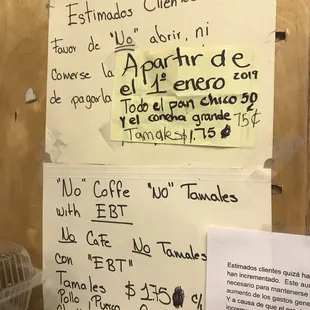 Estimados Clien
Favor de "No" abrir, ni
Comerse la
de pagarla
Apartir de
el 1º enero 2019
Todo el pan chico 50¢
y el concha grande 75¢
Tamales $1.75
"No" Coffe "No" Tamales
with EBT
No Cafe No Tamales
con "EBT"
Tamales $1.75 c/
Pollo, Puerco
Estimados clientes quizá ha
han incrementado. Este au
aumento de los gastos gene
necesario para mantenerse
Y a causa de que el pre